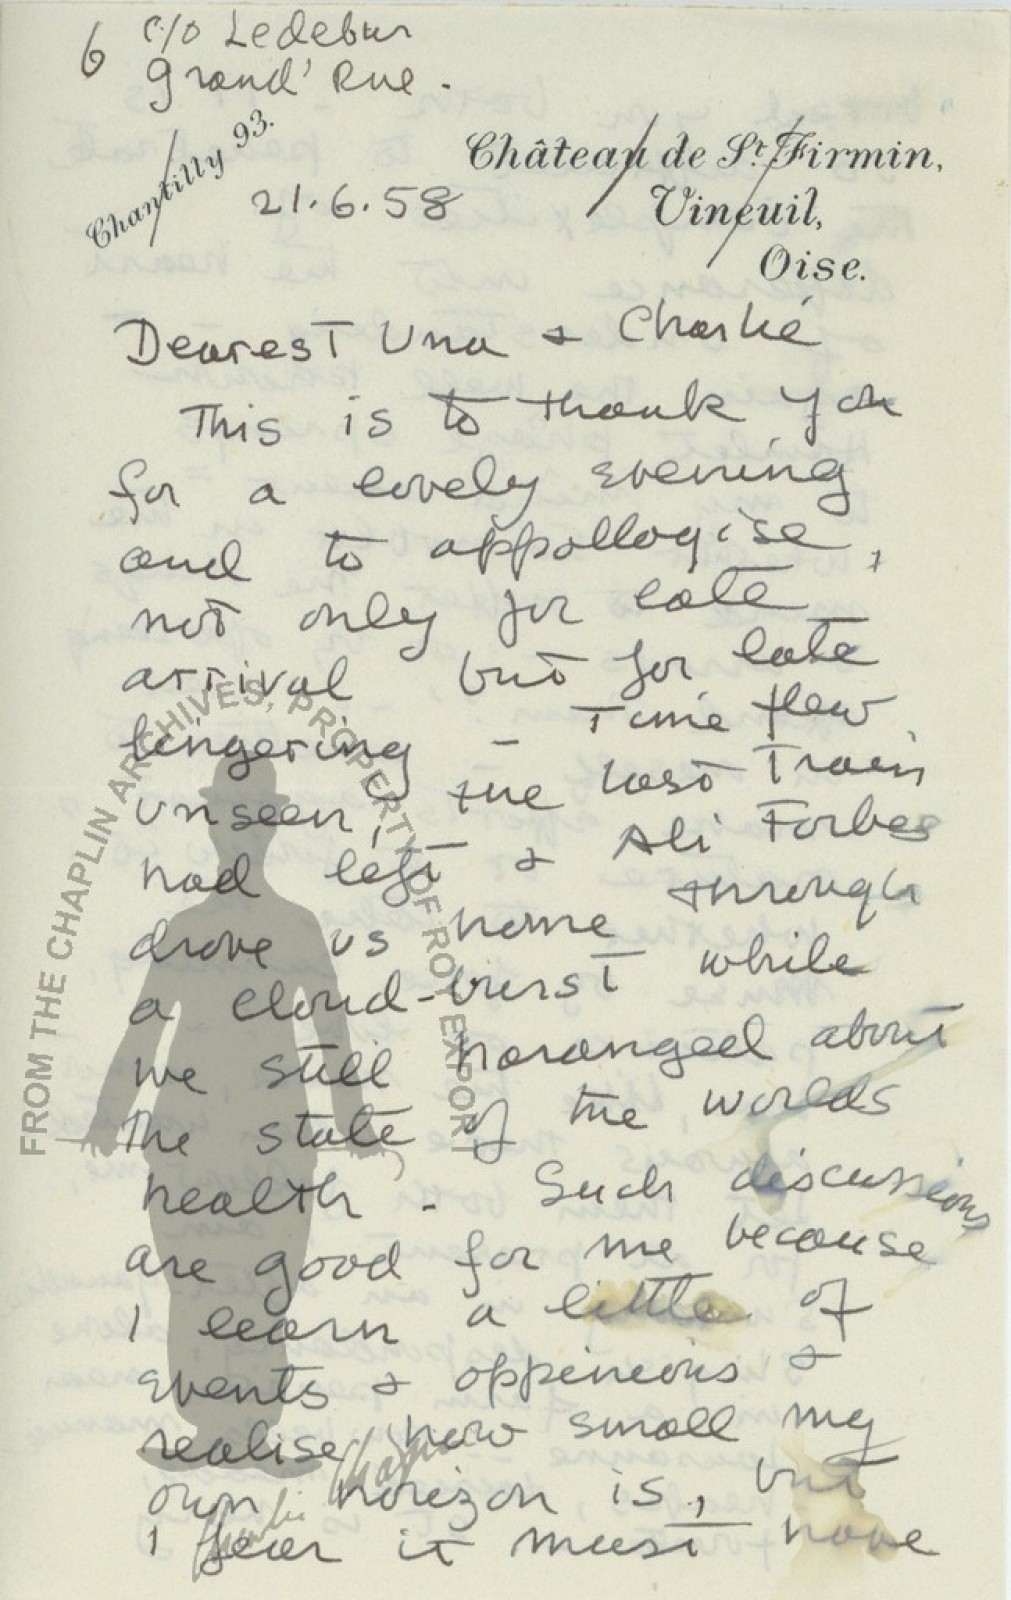 6 c/o Ledebur
Grand' Rue.
Chantilly 93.
Château de St Firmin,
Vineuil,
Oise.
21.6.58
Dearest Una & Charlie
This is to thank you
for a lovely evening
and to appollogise,
not only for late
arrival but for late
lingering - Time flew
unseen, the last Train
had left & Ali Forbes
drove us home through
a cloud-burst while
we still harangeed about
the state of the worlds
health. Such discussions
are good for me because
I learn a little of
events & oppinions &
realise how small my
own horizon is, but
I fear it must have
FROM THE CHAPLIN ARCHIVES, PROPERTY OF ROY EXPORT
Charlie Chaplin